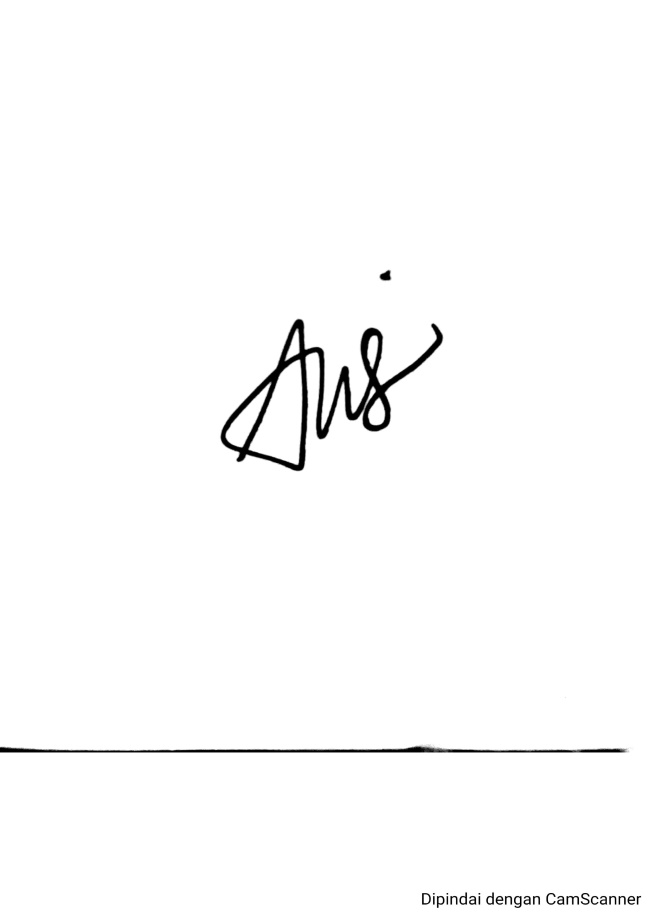 Anis
Dipindai dengan CamScanner